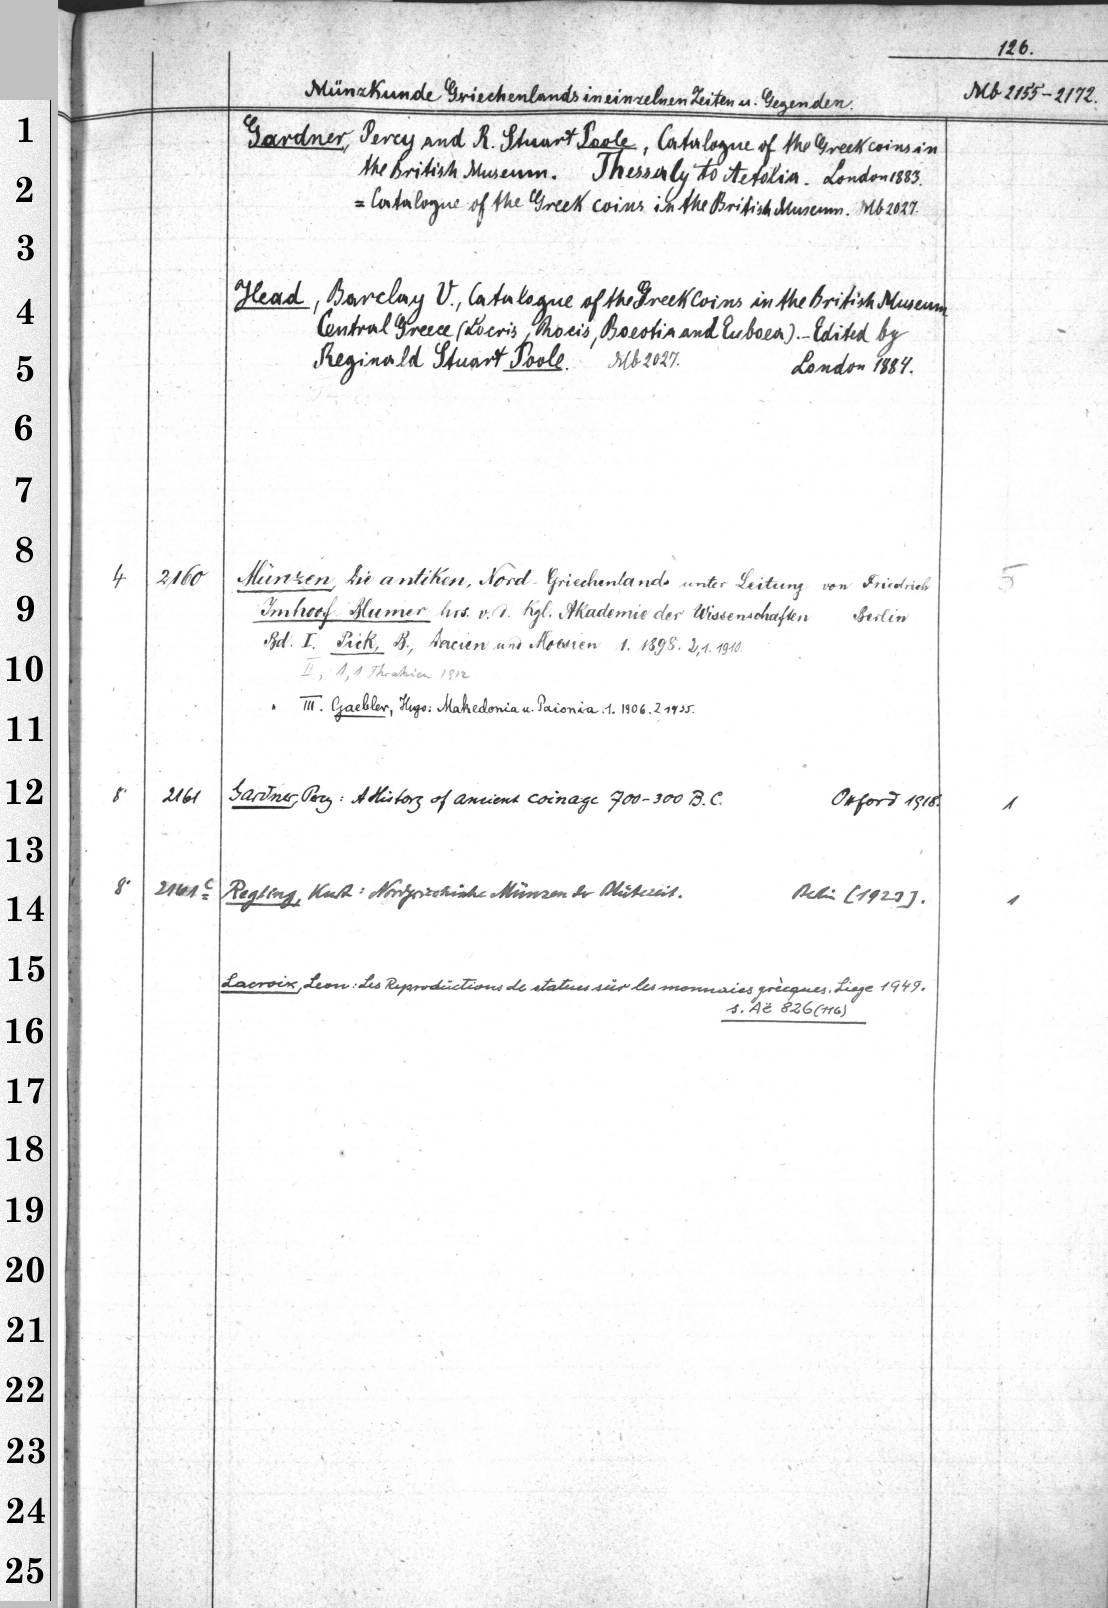 126.
Münzkunde Griechenlands in einzelnen Zeiten u. Gegenden. Mb 2155-2172.
1
Gardner, Percy and R. Stuart Poole, Catalogue of the Greek coins in
the British Museum. Thessaly to Aetolia. London 1883.
2
= Catalogue of the Greek coins in the British Museum. Mb 2027.
3
Head, Barclay V., Catalogue of the Greek Coins in the British Museum
4
Central Greece (Locris, Phocis, Boeotia and Euboea). - Edited by
Reginald Stuart Poole. Mb 2027. London 1884.
5
6
7
8
4 2160 Münzen, Die antiken, Nord-Griechenlands unter Leitung von Friedrich 5
9
Imhoof-Blumer hrs. v. d. Kgl. Akademie der Wissenschaften Berlin
Bd. I. Pick, B., Dacien und Moesien 1. 1898. 2,1. 1910.
10
II, 1,1 Thrakien 1912
" III. Gaebler, Hugo: Makedonia u. Paionia. 1. 1906. 2 1935.
11
12
8° 2161 Gardner, Percy: A History of ancient coinage 700-300 B.C. Oxford 1918. 1
13
8° 2161c Regling, Kurt: Nordgriechische Münzen der Blütezeit. Berlin [1923]. 1
14
15
Lacroix, Leon: Les Reproductions de statues sur les monnaies grècques. Liege 1949.
s. Az 826 (116)
16
17
18
19
20
21
22
23
24
25